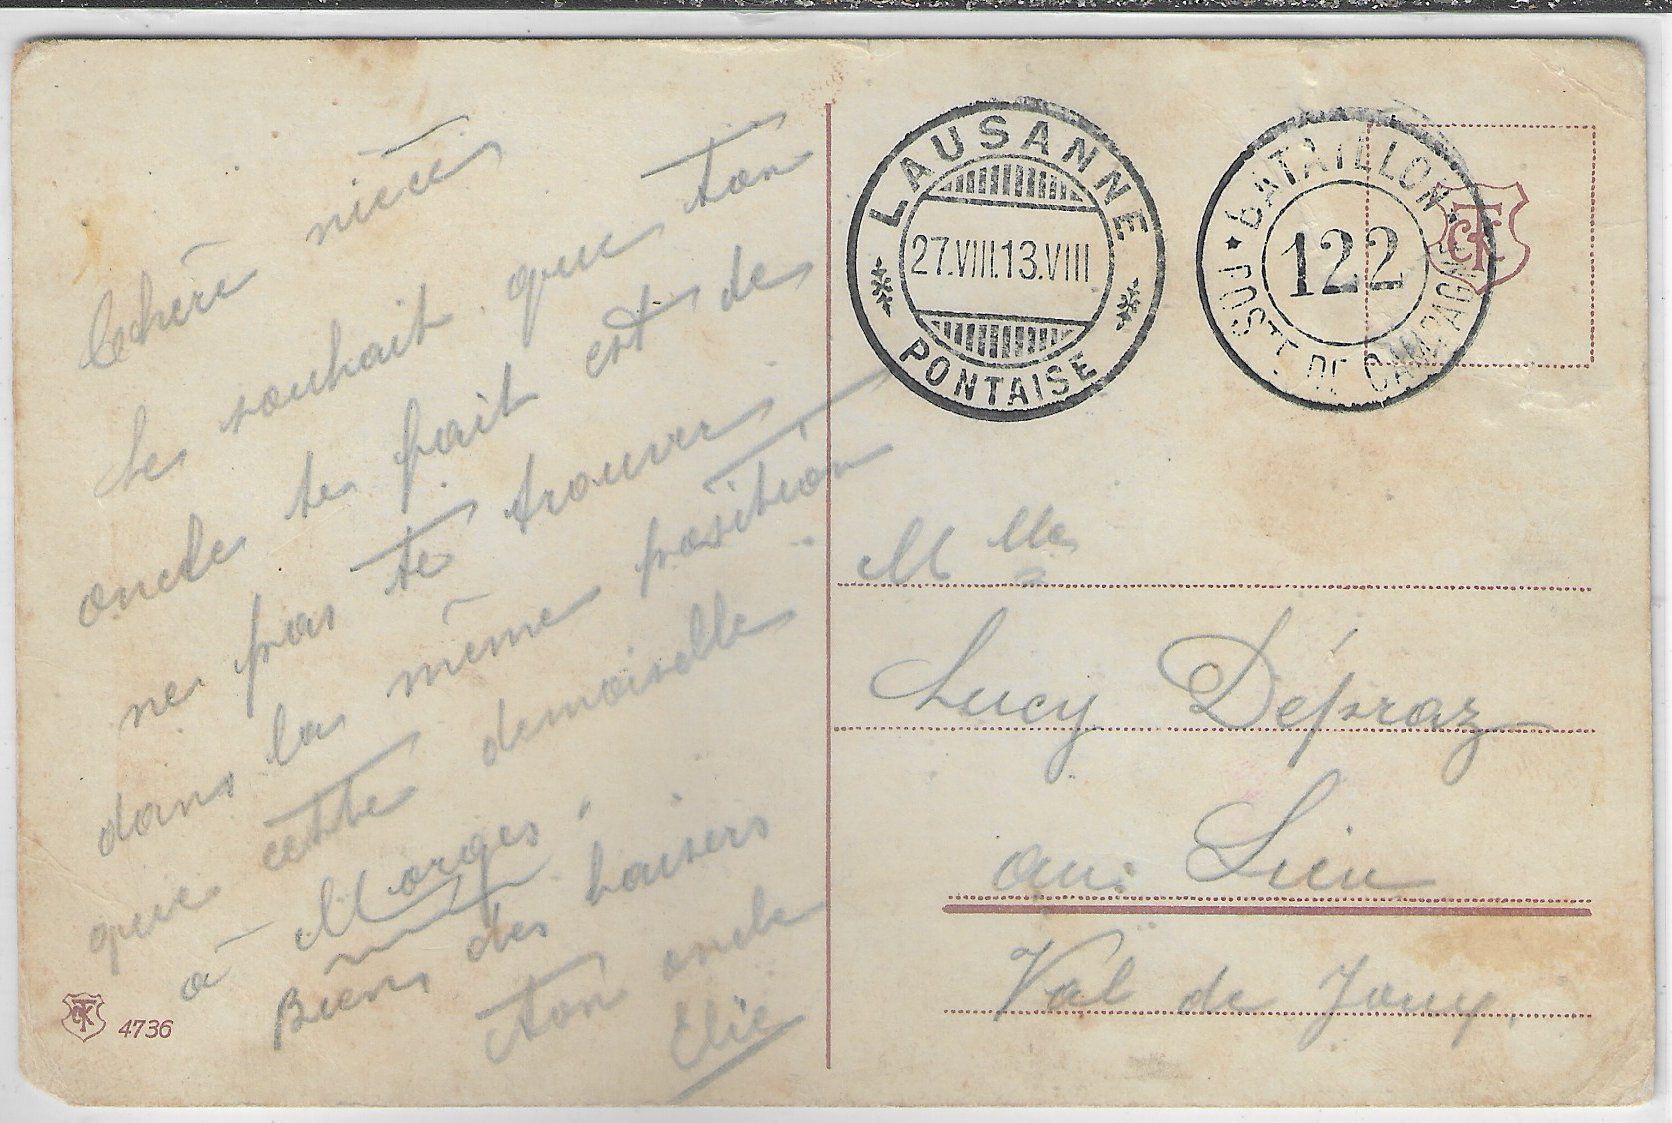 Chère nièce
Le souhait que ton
oncle te fait est de
ne pas te trouver
dans la même position
que cette demoiselle
à Morges.
Biens des baisers
ton oncle
Elie
4736
LAUSANNE
27.VIII.13.VIII
PONTAISE
BATAILLON
122
POSTE DE CAMPAGNE
Mlle
Lucy Dépraz
au Lieu
Val de Joux.